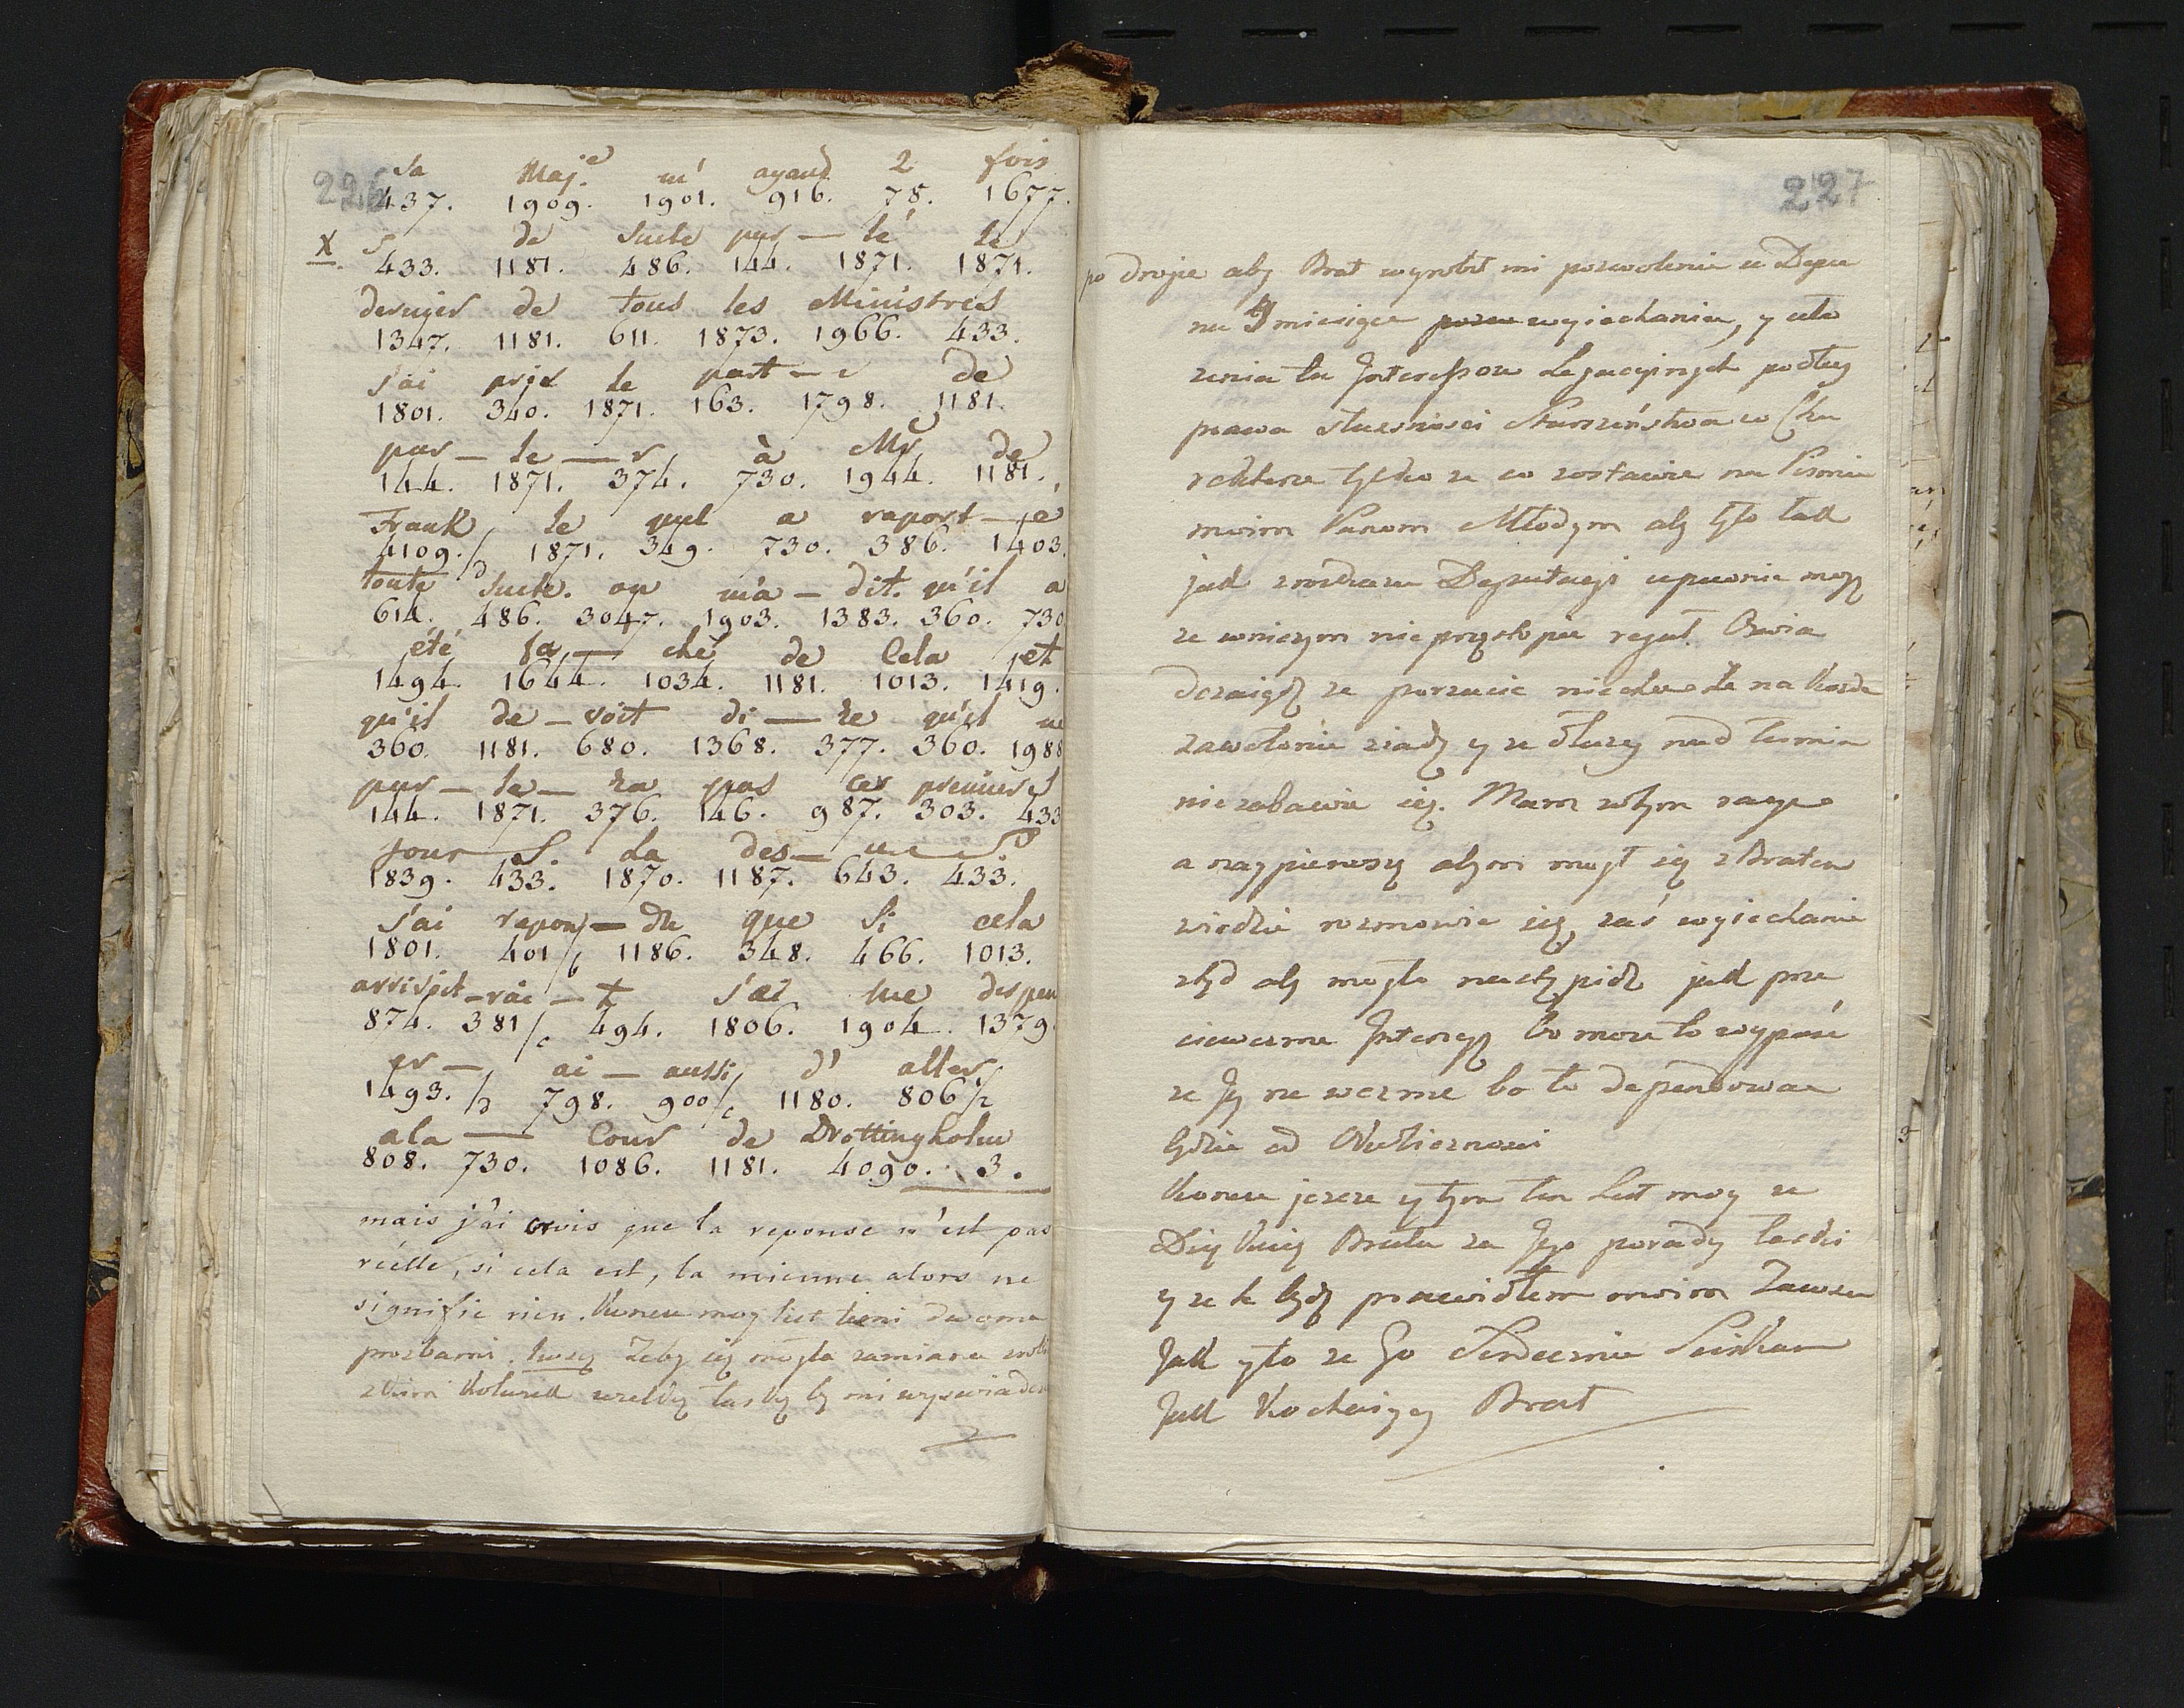 226
Sa Maj.e m' ayant 2 fois
437. 1909. 1901. 916. 78. 1677.
X S de suite par — lé le
433. 1181. 486. 144. 1871. 1871.
dernier de tous les Ministres
1347. 1181. 611. 1873. 1966. 433.
j'ai pris le part — i de
1801. 340. 1871. 163. 1798. 1181.
par — le — r à Mr de
144. 1871. 374. 730. 1944. 1181.
Frank le quel a raport — é
4109./ 1871. 349. 730. 386. 1403.
toute suite. on m'a — dit. qu'il a
614. 486. 3047. 1903. 1383. 360. 730
été fa — ché de Cela et
1494. 1644. 1034. 1181. 1013. 1419.
qu'il de — voit di — re qu'il ne
360. 1181. 680. 1368. 377. 360. 1988
par — le — ra pas ces premiers
144. 1871. 376. 146. 987. 303. 433
jour S. La des — u e S
1839. 433. 1870. 1187. 643. 433.
J'ai repon — du que Si cela
1801. 401/6 1186. 348. 466. 1013.
arrivoit — rai — t j'ai me dispen
874. 381/c 494. 1806. 1904. 1379.
er — ai — aussi d' aller
1493./ 798. 900/c 1180. 806/2
a la — Cour de Drottingholm
808. 730. 1086. 1181. 4090. 3.
mais j'ai crois que la reponse n'est pas
réelle, si cela est, la mienne alors ne
signifie rien. Koncze moy list temi dwoma
prozbami. Żeby się mogła zamiana
wielką łaskę by mi wyswiadcz
227
po drugie aby Brat wyrobił mi pozwolenie u Depu
na miesiące wyiechania, y
zenia tu Interessow Legacyinych podług
prawa słuszności Starszeństwa w Cha
rakterze tylko ze co zostawie na Pismie
moim Panom Młodym aby było tak
jak z rozkazu Deputacyi upewnic mogę
ze wniczym nie przestąpie reguł. Oswia
dczaiąc ze porzucic nie chce ale na każde
zawołanie ziadę y ze dłuzey nad termin
nie zabawie się. Mam w tym racye
a naypierwszy abym mogł się z Bratem
widzic rozmowic się, zaś wyiechanie
ztąd aby mogło nastąpić jak prze
ciwczme Interesy bo moze to wypaść
ze Jey nie wezme bo to dependowac
będzie od Okoliczności
Koncze jeszcze y tym ten List moy ze
Dziękuię Bratu za Jego porady łaski
y ze te będą prawidłem moim Zawsze
Jak y to ze Go Serdecznie Sciskam
Jak Kochaiący Brat